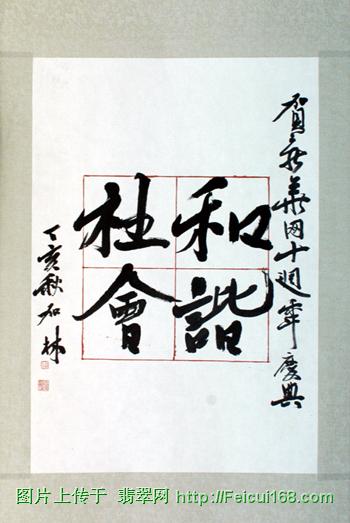 贺新华网十週年慶典
和諧
社會
丁亥秋 如林
图片上传于 翡翠网 http://Feicui168.com